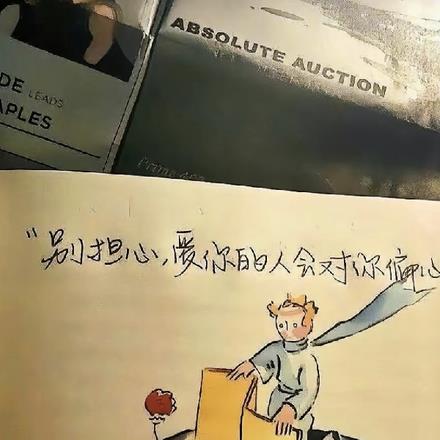 ABSOLUTE AUCTION
DE LEADS
APLES
"别担心,爱你的人会对你偏心